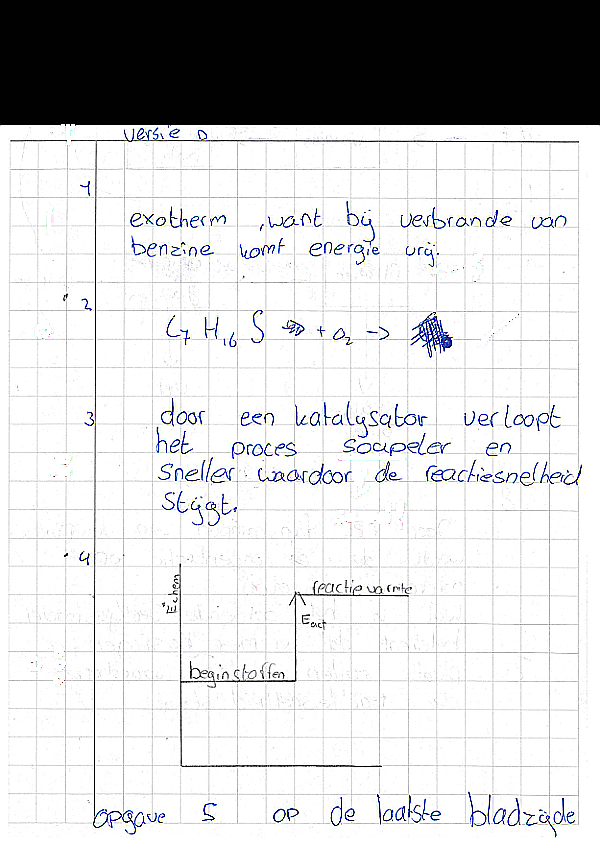 versie D
1
exotherm, want bij verbrande van
benzine komt energie vrij.
2
C7 H16 S + O2 ->
3
door een katalysator verloopt
het proces soupeler en
sneller waardoor de reactiesnelheid
stijgt.
4
Echem
reactiewarmte
Eact
beginstoffen
opgave 5 op de laatste bladzijde